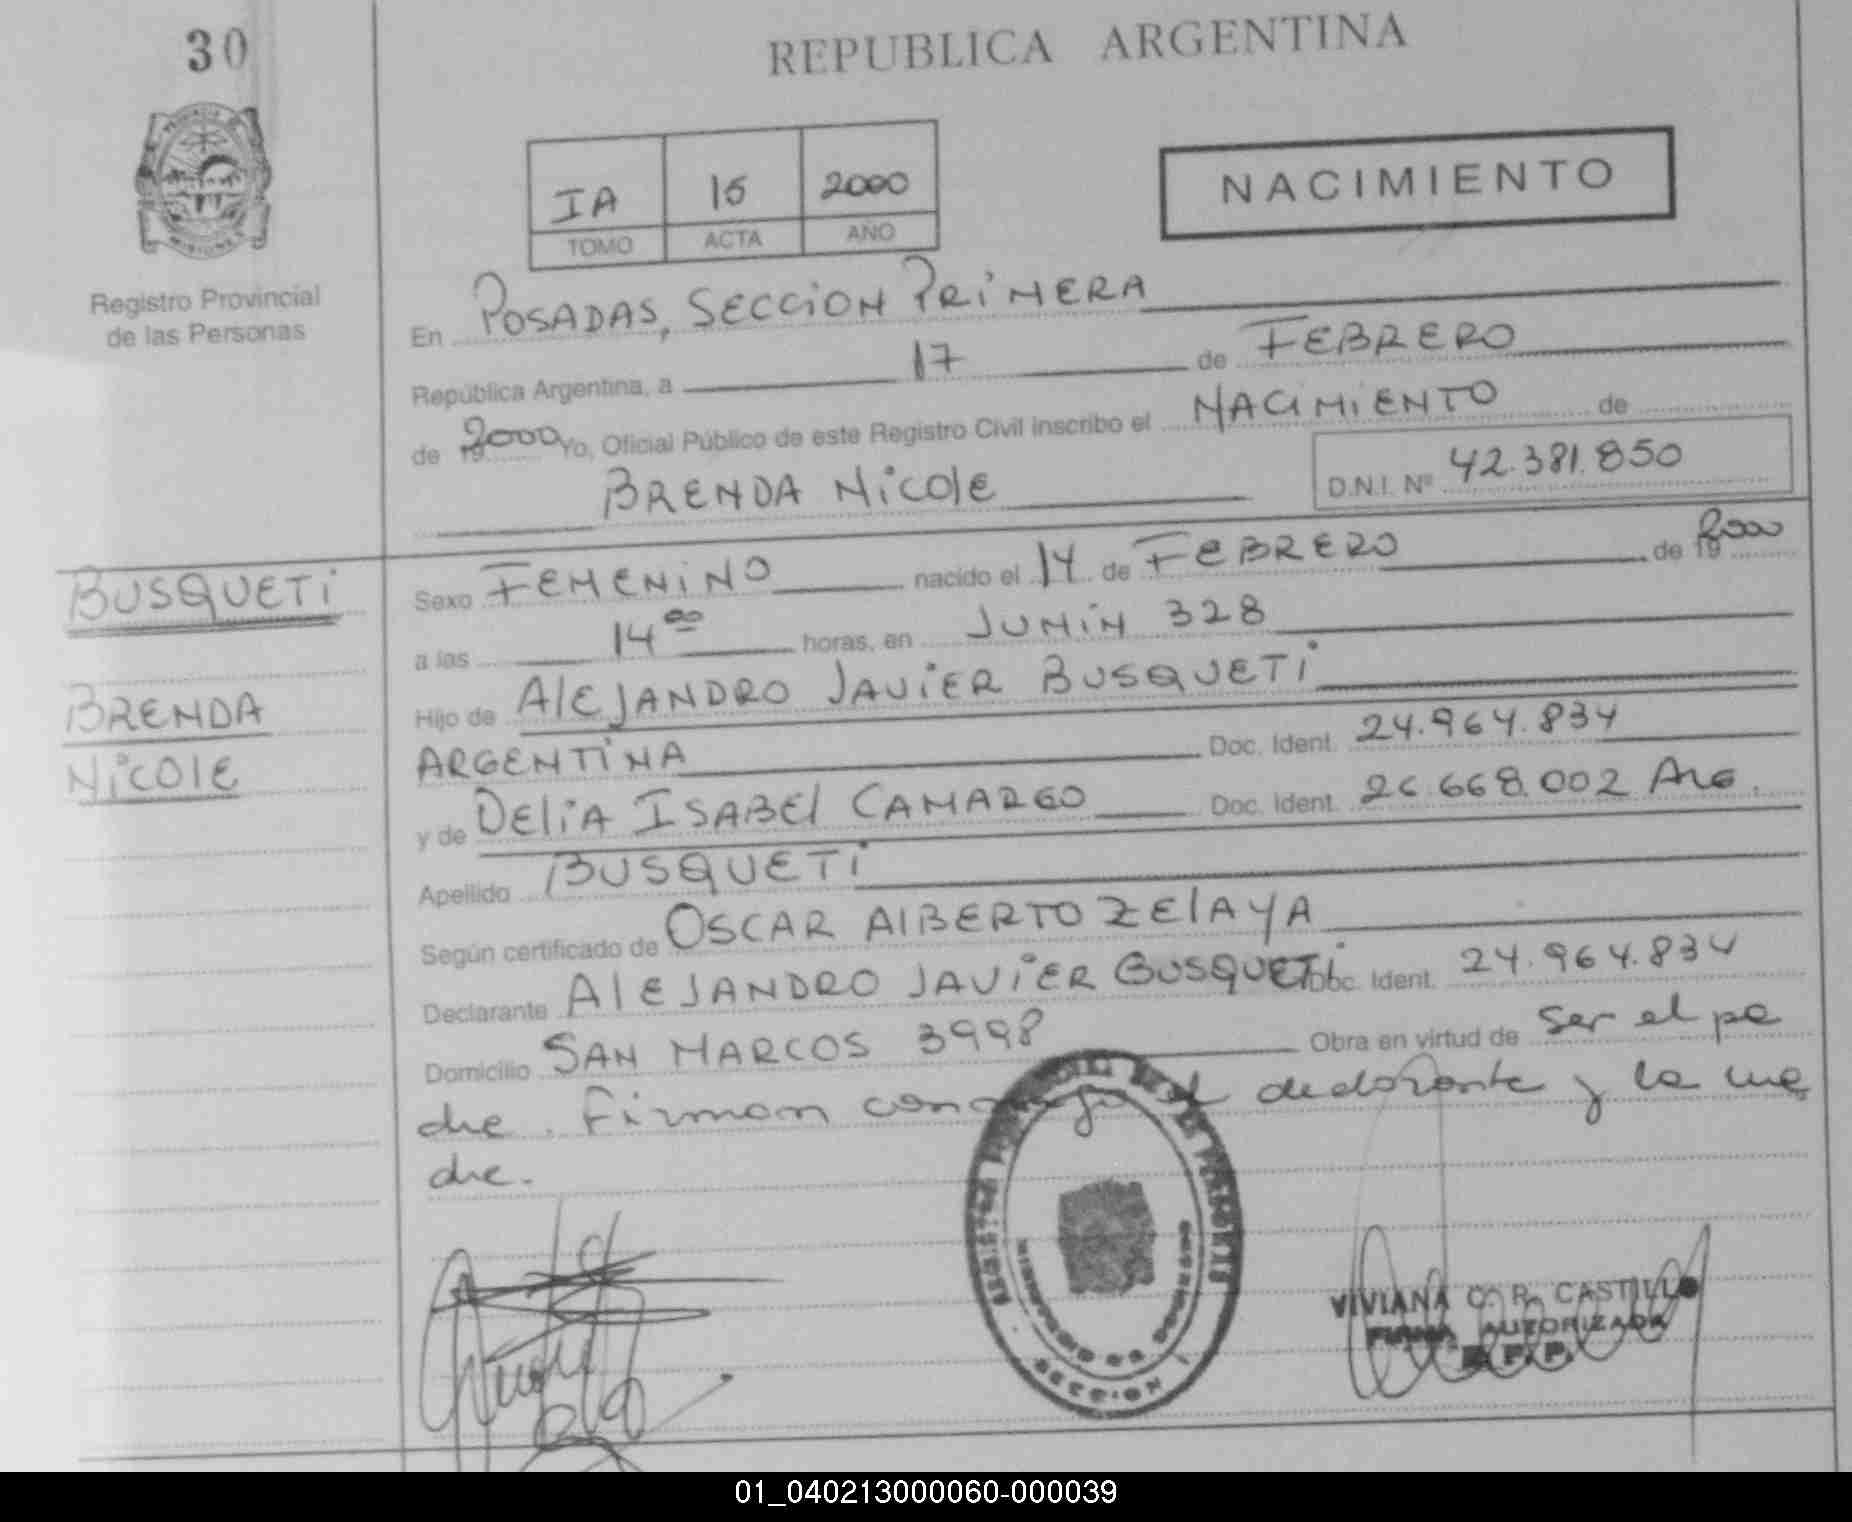 30
REPUBLICA ARGENTINA
IA 15 2000
TOMO ACTA AÑO
NACIMIENTO
Registro Provincial
de las Personas
En POSADAS, SECCION PRIMERA
República Argentina, a 17 de FEBRERO
de 19 2000 Yo, Oficial Público de este Registro Civil inscribo el NACIMIENTO de
BRENDA NICOLE D.N.I. Nº 42.381.850
BUSQUETI
BRENDA
NICOLE
Sexo FEMENINO nacido el 14 de FEBRERO de 19 2000
a las 14 00 horas, en JUNIN 328
Hijo de ALEJANDRO JAVIER BUSQUETI
ARGENTINA Doc. Ident. 24.964.834
y de DELIA ISABEL CAMARGO Doc. Ident. 26.668.002 ARG.
Apellido BUSQUETI
Según certificado de OSCAR ALBERTO ZELAYA
Declarante ALEJANDRO JAVIER BUSQUETI Doc. Ident. 24.964.834
Domicilio SAN MARCOS 3998 Obra en virtud de ser el pa
dre. Firman conmigo el declarante y la ma
dre.
VIVIANA C. R. CASTILLO
FIRMA AUTORIZADA
R.P.P.
01_040213000060-000039